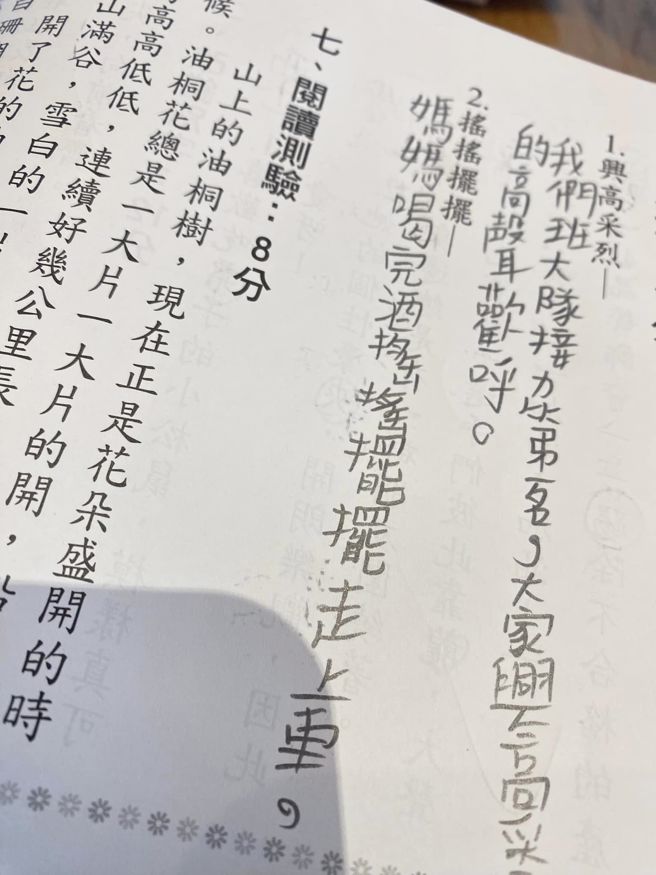 1.興高采烈—
我們班大隊接力第一名，大家興高采
的高聲歡呼。
2.搖搖擺擺—
媽媽喝完酒搖搖擺擺走上車。
七、閱讀測驗：8分
山上的油桐樹，現在正是花朵盛開的時
候。油桐花總是一大片一大片的開，
高高低低，連續好幾公里長
山滿谷，雪白的一
開了花的油